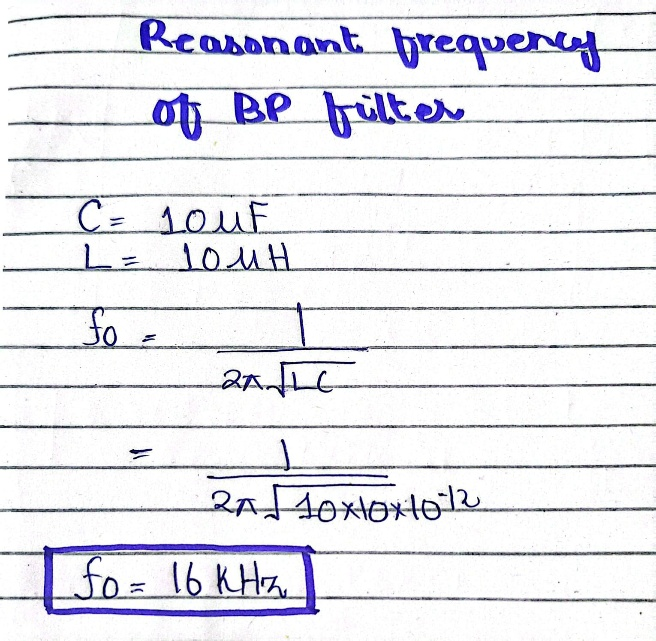 Reasonant frequency
of BP filter
C = 10 μF
L = 10 μH
fo = 1 / 2π√LC
= 1 / 2π√10×10×10^-12
fo = 16 KHz